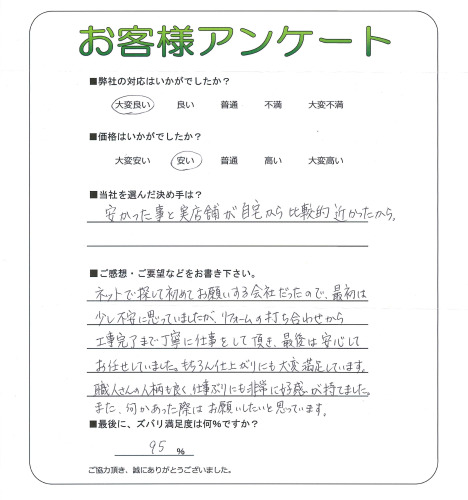 お客様アンケート
■弊社の対応はいかがでしたか？
大変良い 良い 普通 不満 大変不満
■価格はいかがでしたか？
大変安い 安い 普通 高い 大変高い
■当社を選んだ決め手は？
安かった事と実店舗が自宅から比較的近かったから。
■ご感想・ご要望などをお書き下さい。
ネットで探して初めてお願いする会社だったので、最初は
少し不安に思っていましたが、リフォームの打ち合わせから
工事完了まで丁寧に仕事をして頂き、最後は安心して
お任せしていました。もちろん仕上がりにも大変満足しています。
職人さんの人柄も良く、仕事ぶりにも非常に好感が持てました。
また、何かあった際はお願いしたいと思っています。
■最後に、ズバリ満足度は何%ですか？
95 %
ご協力頂き、誠にありがとうございました。